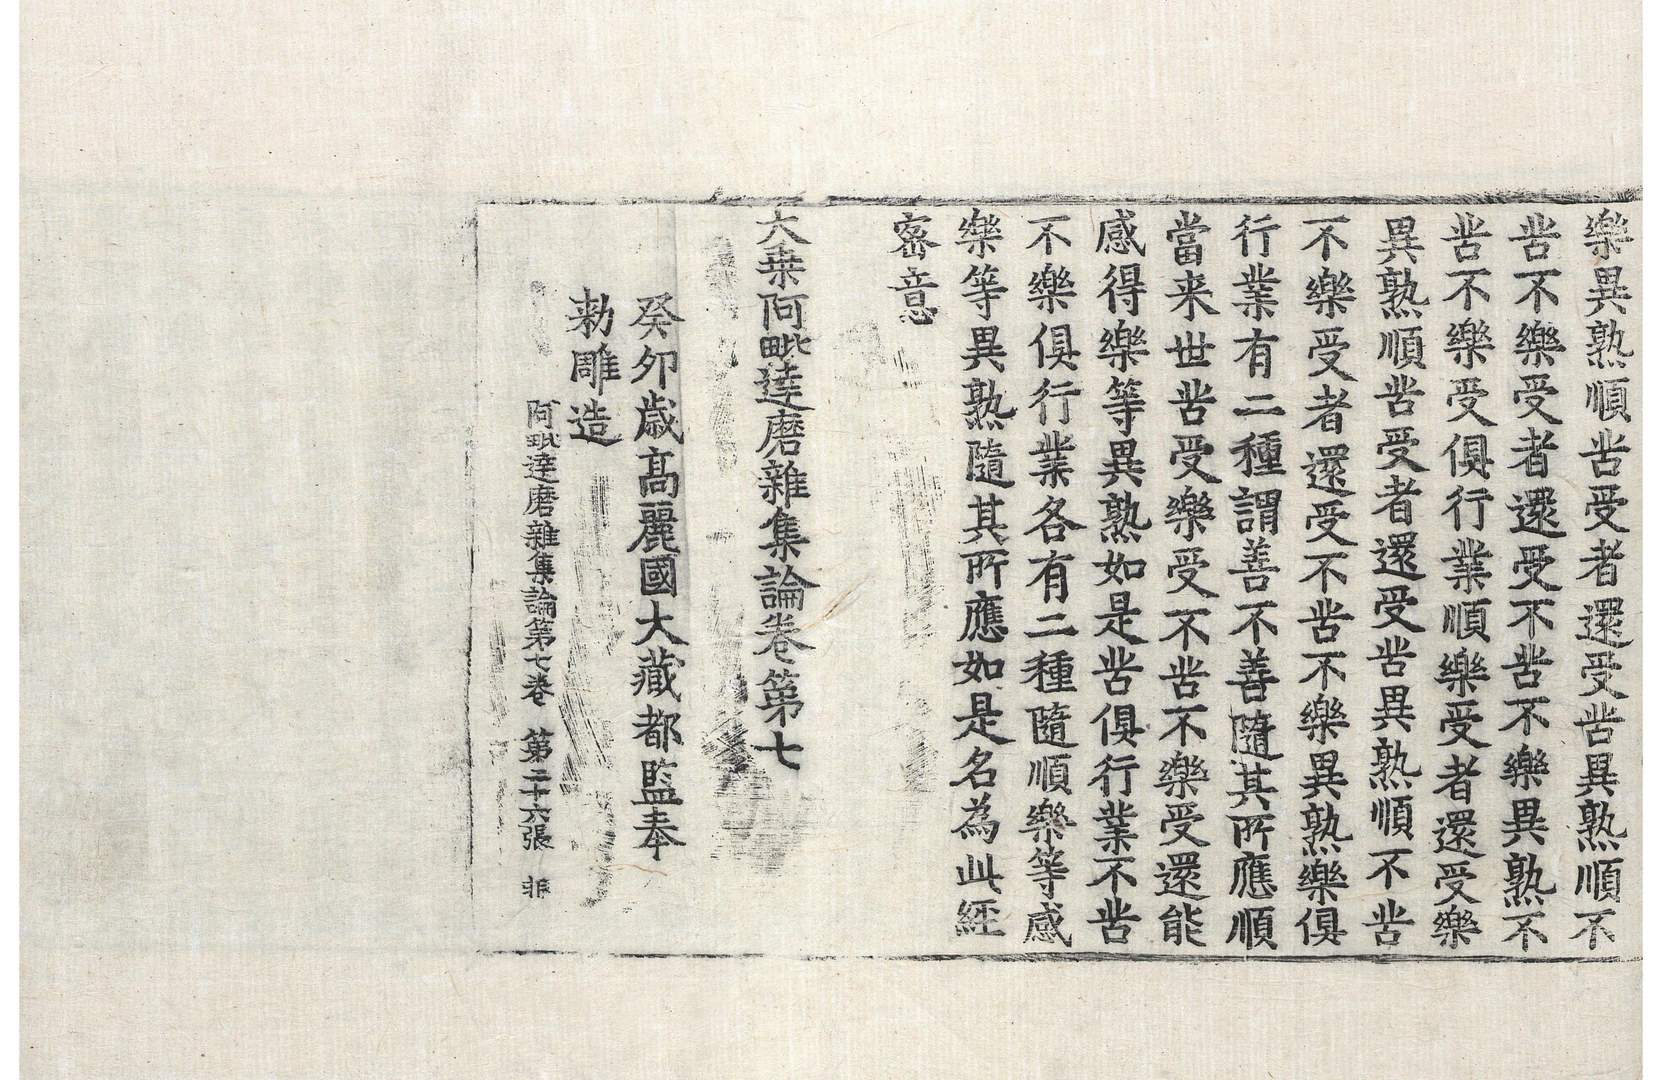 樂異熟順苦受者還受苦異熟順不
苦不樂受者還受不苦不樂異熟不
苦不樂受俱行業順樂受者還受樂
異熟順苦受者還受苦異熟順不苦
不樂受者還受不苦不樂異熟樂俱
行業有二種謂善不善隨其所應順
當来世苦受樂受不苦不樂受還能
感得樂等異熟如是苦俱行業不苦
不樂俱行業各有二種隨順樂等感
樂等異熟隨其所應如是名為此經
密意
大乗阿毗達磨雜集論卷第七
癸卯歲高麗國大藏都監奉
勑雕造
阿毗達磨雜集論第七卷　第二十六張　非